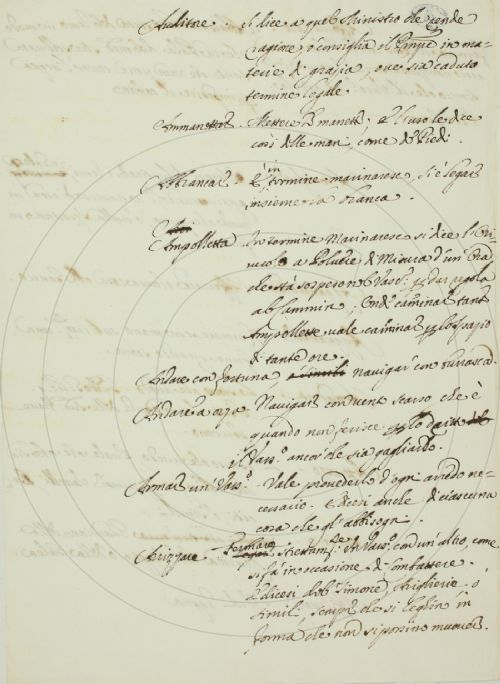 Auditore. Si dice a quel Ministro che rende
ragione, o consiglia il Principe in ma=
terie di grazia, ove sia caduto
termine legale.
Ammanettar. Mettere le manette; e l'uso le dice
così delle mani, come de Piedi.
Abbrancar. È in termine marinarese, si è legar
insieme la branca.
Ampolletta In termine Marinarese si dice l'Ori
uolo a Polvere di Misura d'un' Ora
che sta sospeso nel Vasc.
al cammin; Onde caminar tante
Ampollette vale caminar per lo spazio
di tante ore.
Andare con fortuna, navigar con burrasca.
Andare a orza Navigar con vento scarso che è
quando non ferisce per lo dritto
il Vass.o ancor che sia gagliardo.
Armar un' Vass.o. Vale provederlo d'ogni arredo ne=
cessario. E dicesi anche di ciascuna
cosa che gl' abbisogn.
Arizzare Fermare strettam.e un Vass.o con un' altro, come
si fa in occasione di combattere.
E dicesi dob. timone, Artiglierie, o
simili, sempre che si leghin' in
forma che non si possino muover.